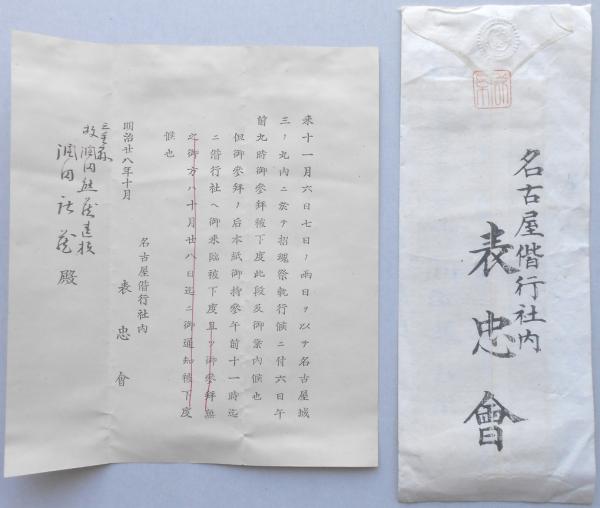 来十一月六日七日ノ両日ヲ以テ名古屋城
三ノ丸内ニ於テ招魂祭執行候ニ付六日午
前九時御参拜被下度此段及御案内候也
但御参拜ノ后本紙御持参午前十一時迄
ニ偕行社ヘ御来臨被下度且ツ御参拜無
之御方ハ十月廿八日迄ニ御通知被下度
候也
名古屋偕行社内
表忠會
明治廿八年十月
三重縣
故
遺族
殿
名古屋偕行社内
表忠會